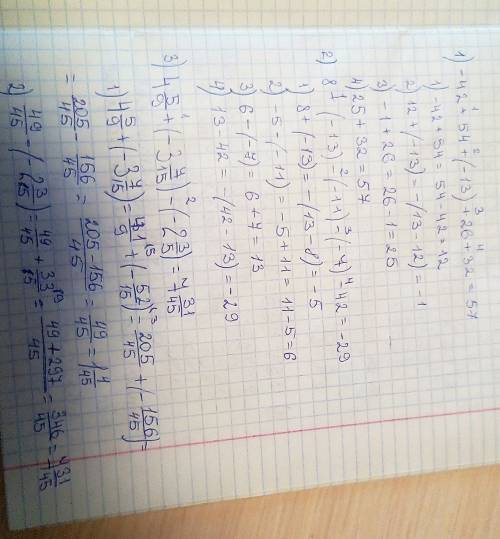 1) -42 + 54 + (-13) + 26 + 32 = 57
1) -42 + 54 = 54 - 42 = 12
2) 12 + (-13) = -(13 - 12) = -1
3) -1 + 26 = 26 - 1 = 25
4) 25 + 32 = 57
2) 8 + (-13) - (-11) - (-7) - 42 = -29
1) 8 + (-13) = -(13 - 8) = -5
2) -5 - (-11) = -5 + 11 = 11 - 5 = 6
3) 6 - (-7) = 6 + 7 = 13
4) 13 - 42 = -(42 - 13) = -29
3) 4 5/9 + (-3 7/15) - ( = 7 31/45
1) 4 5/9 + (-3 7/15) = 41/9 + (-52/15) = 205/45 + (-156/45) =
= 205/45 - 156/45 = 205-156/45 = 49/45 = 1 4/45
2) 49/45 - ( = 49/45 + = 49+297/45 = 346/45 = 7 31/45